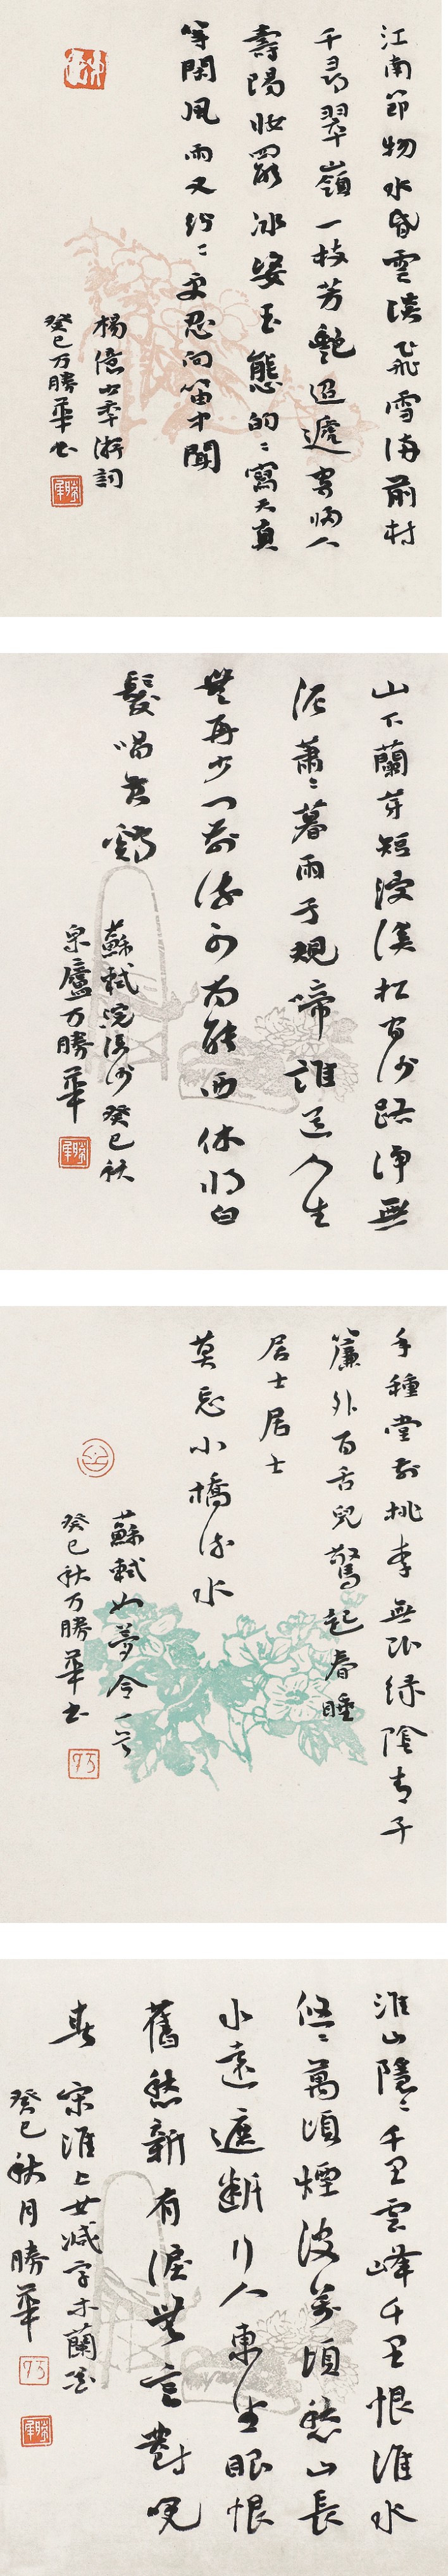 江南節物水昏雲淡飛雪滿前村
千尋翠嶺一枝芳艷迢遞寄歸人
壽陽妝罷冰姿玉態的〻寫天真
等閑風雨又紛〻更忍向笛中聞
楊億少年游詞
癸巳万勝華書
山下蘭芽短浸溪松間沙路淨無
泥蕭〻暮雨子規啼誰道人生
無再少門前流水尚能西休將白
髮唱黃鷄
蘇軾浣溪沙癸巳秋
泉廬万勝華
手種堂前桃李無限綠陰青子
簾外百舌兒驚起春睡
居士居士
莫忘小橋流水
蘇軾如夢令一首
癸巳秋万勝華書
淮山隱〻千里雲峰千里恨淮水
悠〻萬頃煙波萬頃愁山長
水遠遮斷行人東望眼恨
舊愁新有淚無言對晚
春
宋淮上女減字木蘭花
癸巳秋月勝華